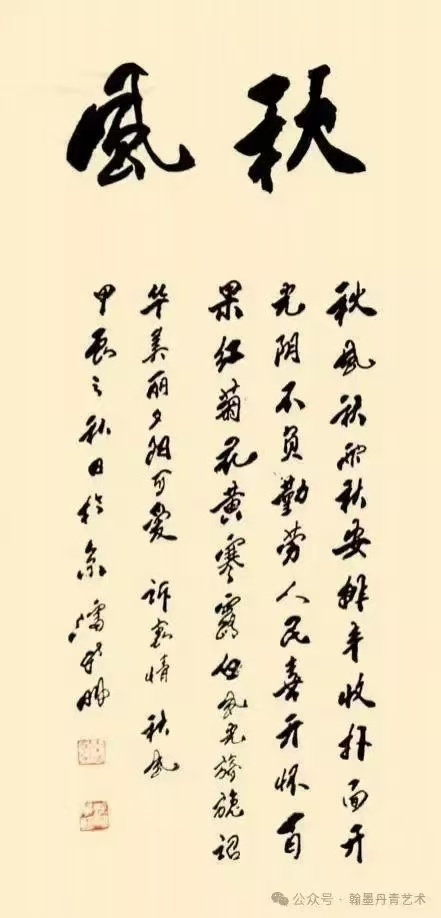 秋风
秋风秋雨秋安排丰收扑面开
光阴不负勤劳人民喜开怀百
果红菊花黄寒露风光旖旎韶
华美丽夕阳可爱 诉衷情 秋风
甲辰之秋日於京
公众号 · 翰墨丹青艺术